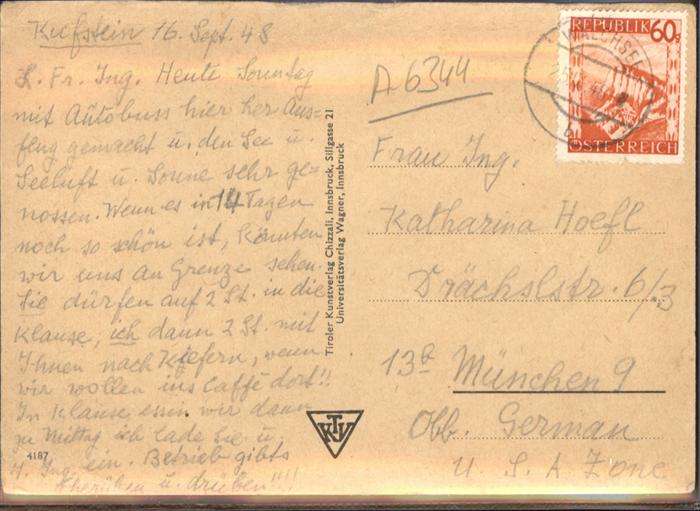 Kufstein 16. Sept. 48
L. Fr. Ing. Heute Sonntag
mit Autobuss hier her Aus-
flug gemacht u. den See u.
Seeluft u. Sonne sehr ge-
nossen. Wenn es in 14 Tagen
noch so schön ist, könnten
wir uns an Grenze sehen.
Sie dürfen auf 2 St. in die
Klause, ich dann 2 St. mit
Ihnen nach Kiefern, wenn
wir wollen ins Caffè dort!!
In Klause essen wir dann
zu Mittag ich lade Sie u.
H. Ing. ein. Betrieb gibts
herüben u. drüben!!!!
4187
Tiroler Kunstverlag Chizzali, Innsbruck, Sillgasse 21
Universitätsverlag Wagner, Innsbruck
KTV
A 6344
REPUBLIK 60g
WALCHSEE
ÖSTERREICH
Frau Ing.
Katharina Hoefl
Drächslstr. 6/3
13b München 9
Obb. German
U. S. A Zone